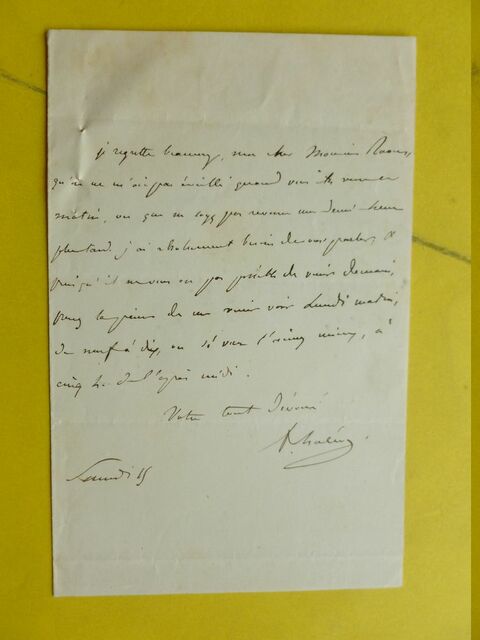 je regrette beaucoup, mon cher Monsieur
qu'on ne m'ait pas éveillé quand vous êtes venu ce
matin, ou que ne soyez pas revenu une demi heure
plus tard. j'ai absolument besoin de vous parler, &
puisqu'il ne vous est pas possible de venir demain,
prenez la peine de me venir voir Lundi matin,
de neuf à dix, ou si vous l'aimez mieux, à
cinq h. de l'après midi.
Votre tout dévoué
Samedi 15